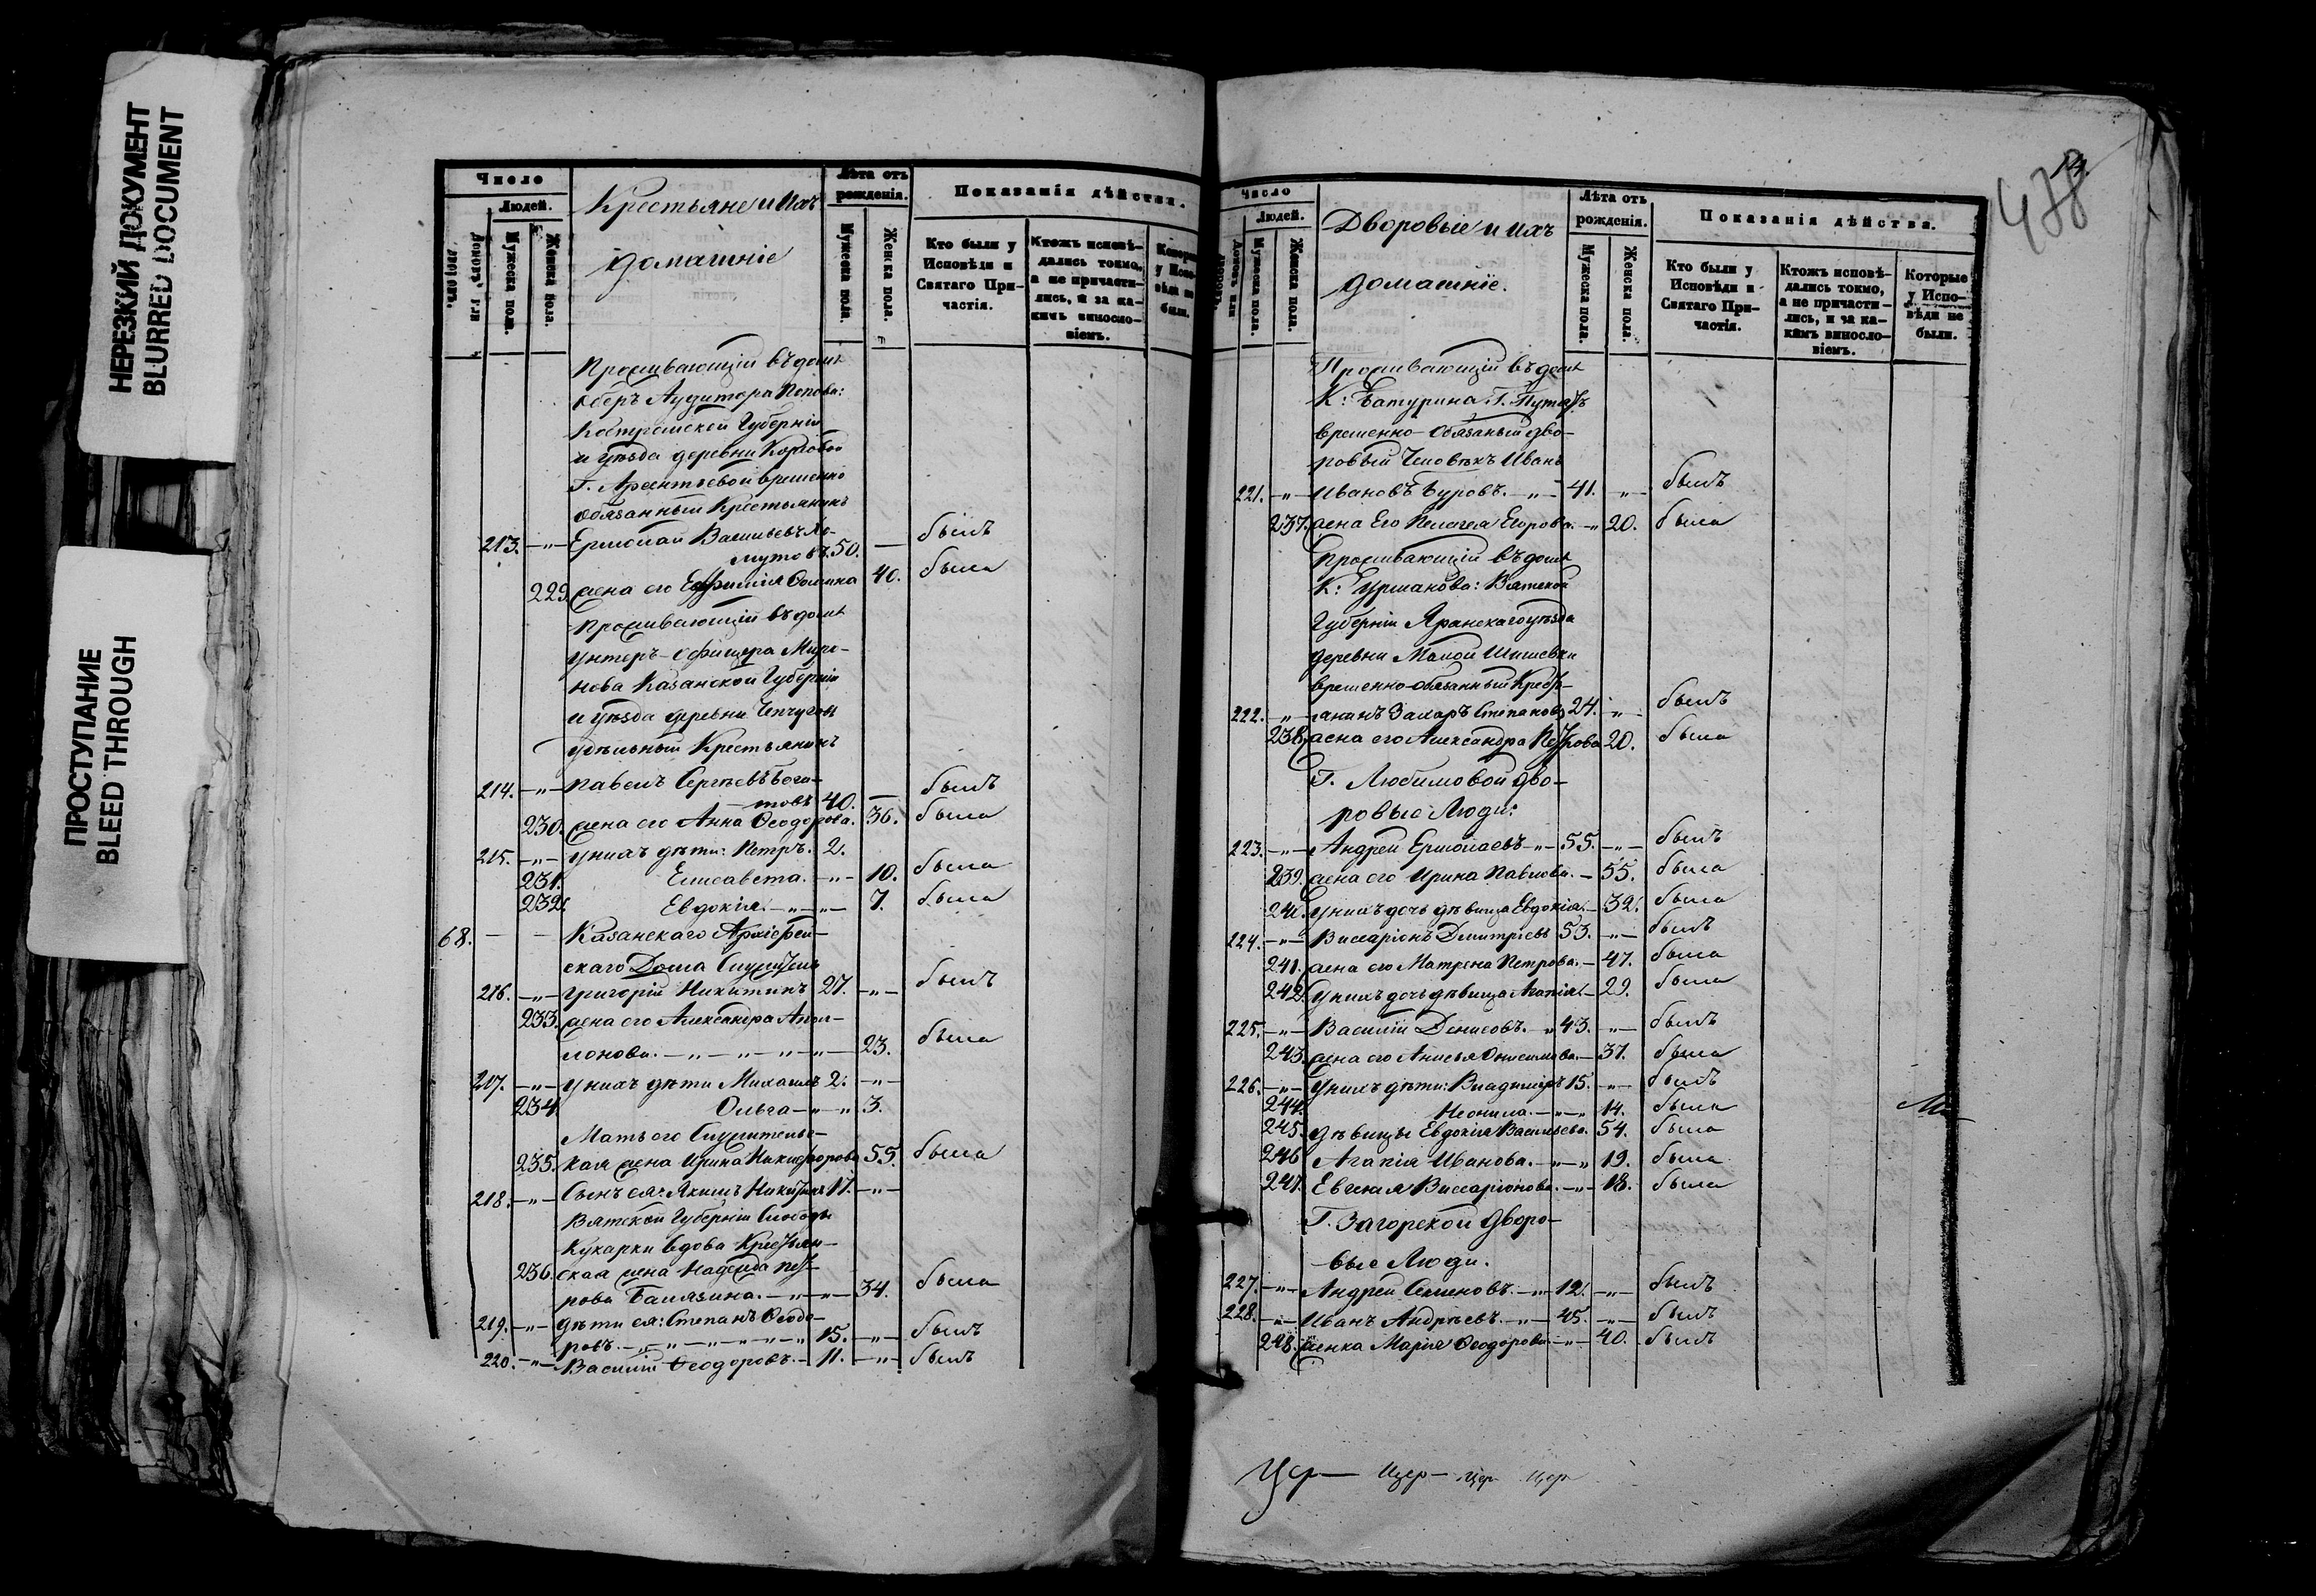 НЕРЕЗКИЙ ДОКУМЕНТ
BLURRED DOCUMENT
ПРОСТУПАНИЕ
BLEED THROUGH
Число
Людей.
Домовъ или дворовъ.
Мужеска пола.
Женска пола.
Крестьяне и ихъ
домашніе
Лѣта отъ
рожденія.
Мужеска пола.
Женска пола.
Показанія дѣйства.
Кто были у
Исповѣди и
Святаго При-
частія.
Ктожъ исповѣ-
дались токмо,
а не причасти-
лись, и за ка-
кимъ виносло-
віемъ.
Проживающій въ домѣ
Оберъ Аудитора Попова:
Костромской Губерніи
и уѣзда деревни
временно
обязанный Крестьянинъ
213. —"— Ермолай Васильевъ
50. — былъ
229. жена его Евфимія 40. была
Проживающій въ домѣ
Унтеръ-Офицера Миро-
нова Казанской Губерніи
и уѣзда деревни
удѣльный Крестьянинъ
214. —"— Павелъ Сергѣевъ Бога-
товъ 40. — былъ
230. жена его Анна Ѳеодорова. 36. была
215. —"— у нихъ дѣти: Петръ. 2.
231. Елисавета. —"— 10. была
232. Евдокія. —"—"— 7. была
68. — — Казанскаго Архіерей-
скаго Дома Служитель
216. —"— Григорій Никитинъ 27. —"— былъ
233. жена его Александра Апол-
лонова. —"—"—"—"— 23. была
217. —"— у нихъ дѣти Михаилъ 2. —"—
234. Ольга —"—" 3.
Мать его Служитель-
235. кая жена Ирина Никифорова 55. была
218. —"— Сынъ ея: Якимъ Никитинъ 17. —"—
Вятской Губерніи Слободы
Кукарки вдова Крестьян-
236. ская жена Надежда Пет-
рова Балязина. —"—"— 34. была
219. —"— дѣти ея: Степанъ Ѳеодо-
ровъ. —"—"—"—"—"—" 15. —"— былъ
220. —"— Василій Ѳеодоровъ. — 11. —"— былъ
14.
478
Число
Людей.
Домовъ или дворовъ.
Мужеска пола.
Женска пола.
Дворовые и ихъ
домашніе.
Лѣта отъ
рожденія.
Мужеска пола.
Женска пола.
Показанія дѣйства.
Кто были у
Исповѣди и
Святаго При-
частія.
Ктожъ исповѣ-
дались токмо,
а не причасти-
лись, и за ка-
кимъ виносло-
віемъ.
Которые
у Испо-
вѣди не
были.
Проживающій въ домѣ
К: Батурина Г.
временно-обязаный дво-
ровый Человѣкъ Иванъ
221. —"— Ивановъ Буровъ. —"— 41. —"— былъ
237. жена Его Пелагея Егорова. —" 20. была
Проживающій въ домѣ
К: Гурманова: Вятской
Губерніи Яранскаго уѣзда
деревни Малой Шишевки
временно-обязанный Крест-
222. —"— янинъ Захаръ Степановъ 24. —"— былъ
238. жена его Александра Петрова 20. была
Г. Любимовой дво-
ровые Люди:
223. —"— Андрей Ермолаевъ —"— 55. —"— былъ
239. жена его Ирина Павлова. — 55. была
240. у нихъ дочь дѣвица Евдокія. — 32. была
224. —"— Виссаріонъ Дмитріевъ 53. —"— былъ
241. жена его Матрена Петрова. — 47. была
242. у нихъ дочь дѣвица Агапія. — 29. была
225. —"— Василій Денисовъ. —" 43. —"— былъ
243. жена его Анисья Онисимова. — 37. была
226. —"— у нихъ дѣти: Владиміръ 15. —"— былъ
244. Неонила. —"—" 14. была
245. дѣвицы Евдокія Васильева. 54. была
246 Агапія Иванова. —"—" 19. была
247. Евгенія Виссаріонова. —"— 18. была
Г. Загорской Дворо-
вые Люди.
227. —"— Андрей Семеновъ. —"— 12. —"— былъ
228. —"— Иванъ Андреевъ. —"— 45. —"— былъ
248. женка Марія Ѳеодорова —"— 40. былъ